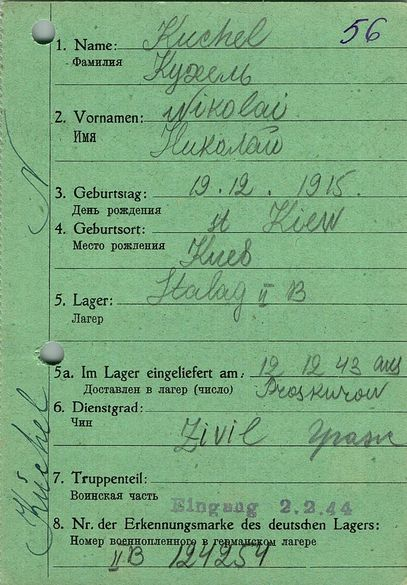 56
1. Name: Kuchel
Фамилия Кухель
2. Vornamen: Nikolai
Имя Николай
3. Geburtstag: 19. 12. 1915.
День рождения
4. Geburtsort: st Kiew
Место рождения Киев
5. Lager: Stalag II B
Лагер
5a. Im Lager eingeliefert am: 12 12 43 aus
Доставлен в лагер (число) Proskurow
6. Dienstgrad:
Чин Zivil граж
7. Truppenteil:
Воинская часть
Eingang 2.2.44
8. Nr. der Erkennungsmarke des deutschen Lagers:
Номер военнопленного в германском лагере
II B 124254
Kuchel N